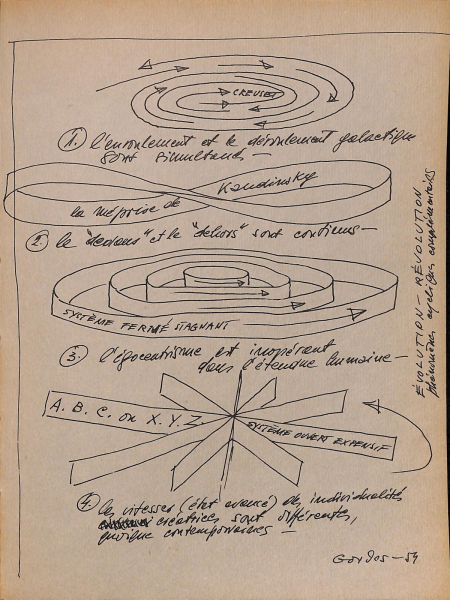 CREUSET
1. l'enroulement et le déroulement galactique
sont simultanés —
la méprise de Kandinsky
2. le "dedans" et le "dehors" sont contenus —
SYSTÈME FERMÉ STAGNANT
3. l'égocentrisme est inopérant
dans l'étendue humaine —
A. B. C. ou X. Y. Z.
SYSTÈME OUVERT EXPENSIF
4. les vitesses (état avancé) des individualités
créatrices sont différentes,
quoique contemporaines —
ÉVOLUTION — RÉVOLUTION
phénomènes cycliques complémentaires